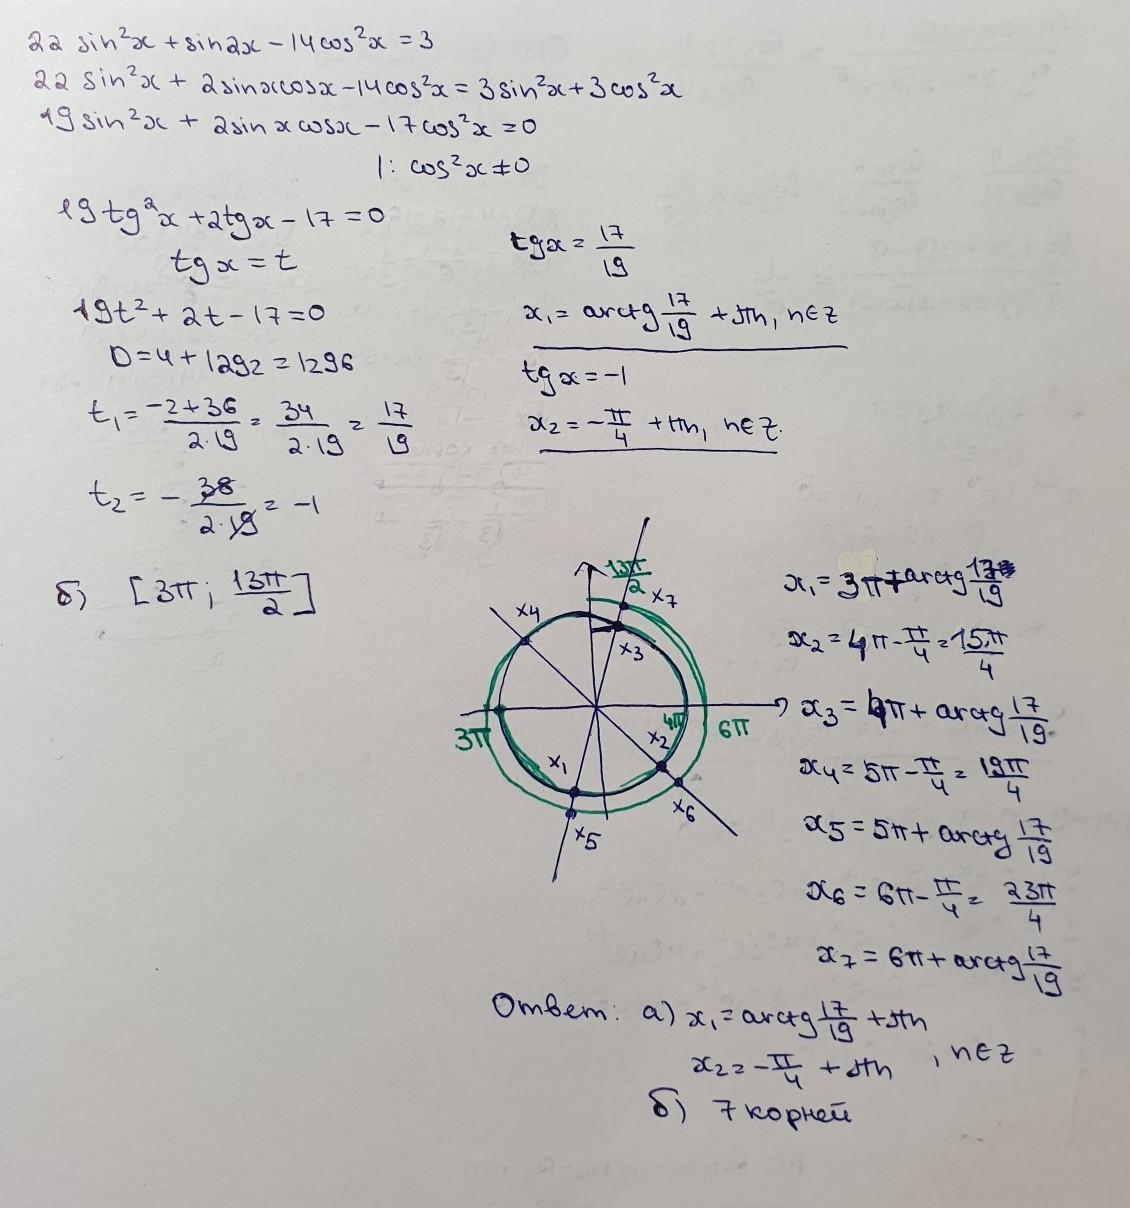 22 sin²x + sin2x − 14cos²x = 3
22 sin²x + 2sinxcosx − 14cos²x = 3sin²x + 3cos²x
19sin²x + 2sinxcosx − 17cos²x = 0
|: cos²x ≠ 0
19tg²x + 2tgx − 17 = 0
tgx = t
19t² + 2t − 17 = 0
D = 4 + 1292 = 1296
t₁ = (−2+36)/(2·19) = 34/(2·19) = 17/19
t₂ = −38/(2·19) = −1
tgx = 17/19
x₁ = arctg 17/19 + πn, n∈Z
tgx = −1
x₂ = −π/4 + πn, n∈Z.
б) [3π; 13π/2]
13π/2
x₇
x₄
x₃
3π
4π
6π
x₂
x₁
x₆
x₅
x₁ = 3π + arctg 17/19
x₂ = 4π − π/4 = 15π/4
x₃ = 4π + arctg 17/19
x₄ = 5π − π/4 = 19π/4
x₅ = 5π + arctg 17/19
x₆ = 6π − π/4 = 23π/4
x₇ = 6π + arctg 17/19
Ответ: а) x₁ = arctg 17/19 + πn
x₂ = −π/4 + πn , n∈Z
б) 7 корней